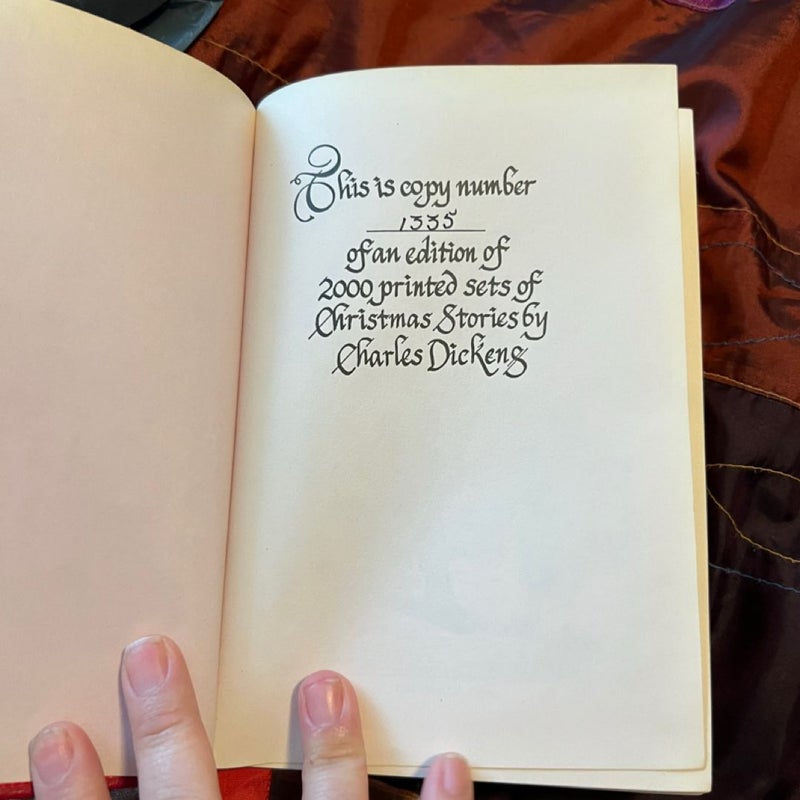 This is copy number
1335
of an edition of
2000 printed sets of
Christmas Stories by
Charles Dickens